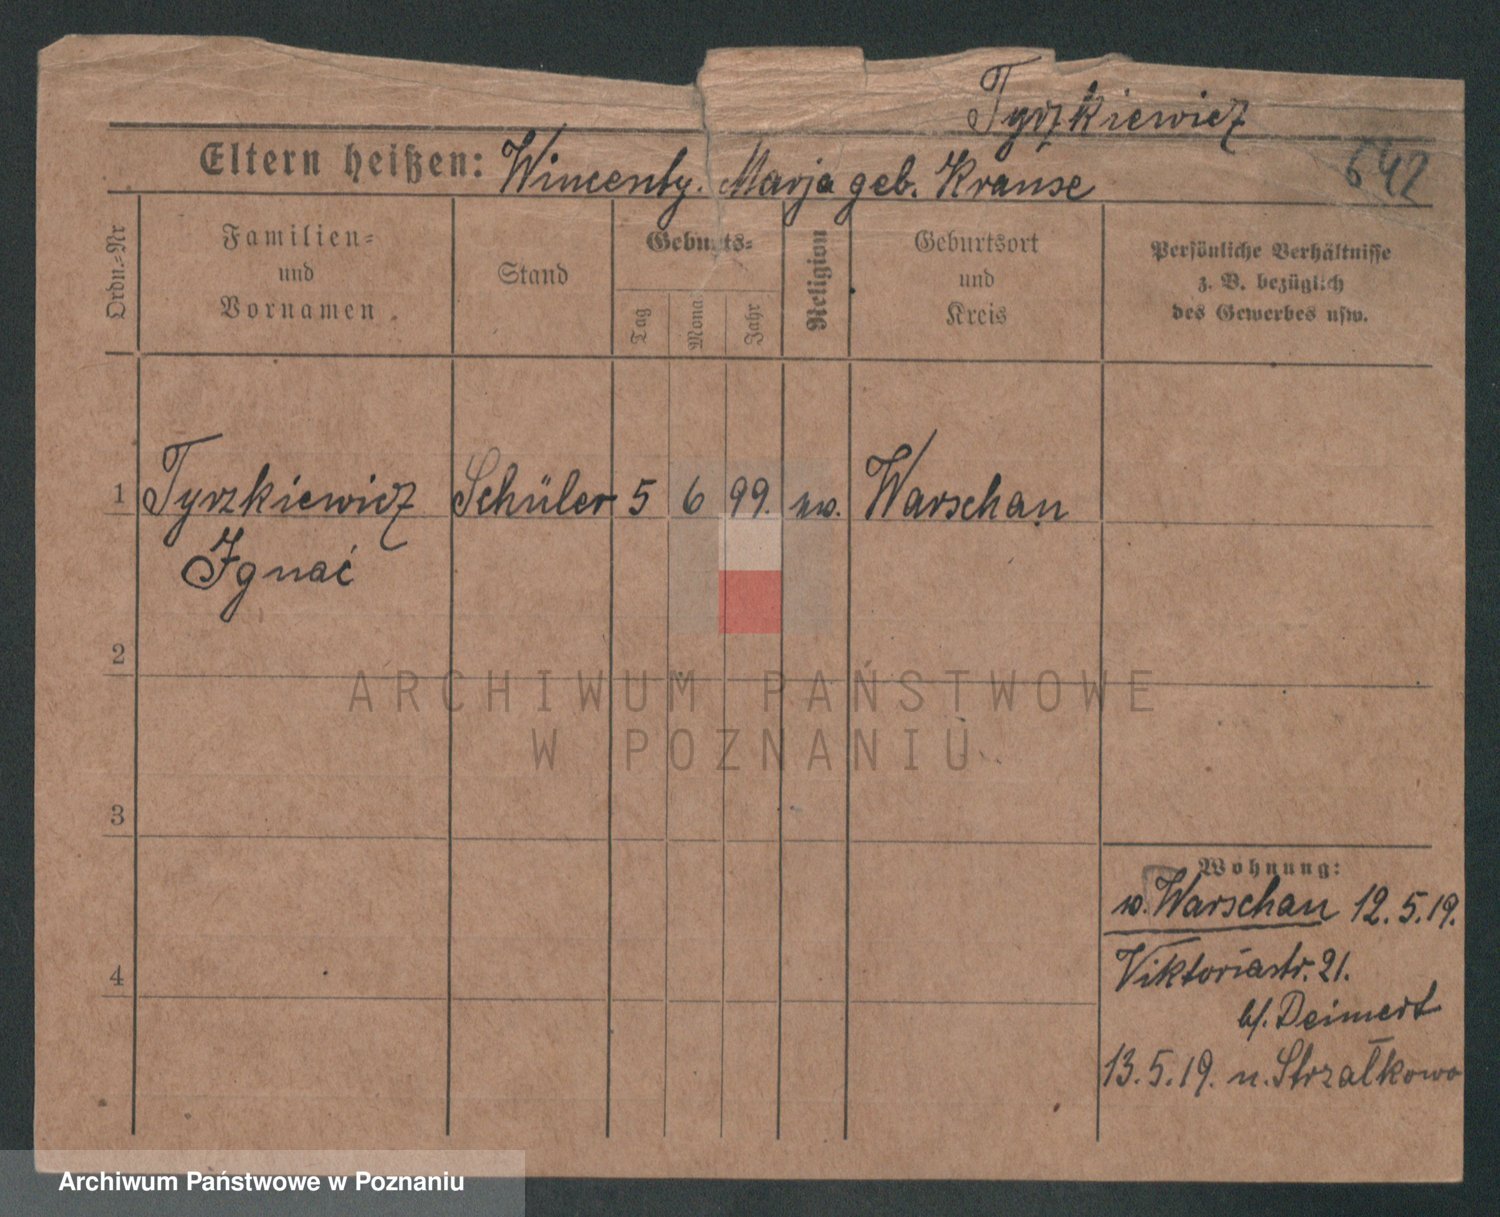 Tyrzkiewicz
Eltern heißen: Wincenty. Marja geb. Krause
642
Ordn.-Nr
Familien-
und
Vornamen
Stand
Geburts-
Tag
Mona
Jahr
Religion
Geburtsort
und
Kreis
Persönliche Verhältnisse
z. B. bezüglich
des Gewerbes usw.
1 Tyrzkiewicz Schüler 5 6 99. Warschau
Ignać
2
ARCHIWUM PAŃSTWOWE
W POZNANIU
3
Wohnung:
w. Warschau 12.5.19.
Viktoriastr. 21.
b/. Deimert
4
13.5.19. n. Strzałkowo
Archiwum Państwowe w Poznaniu